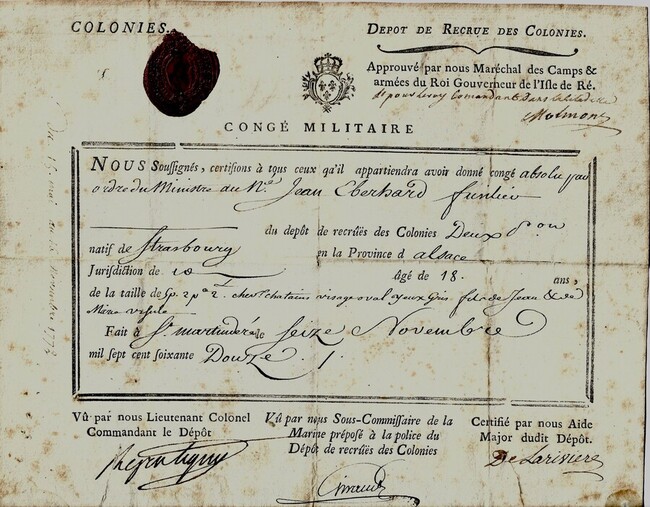 COLONIES.
DEPOT DE RECRUE DES COLONIES.
Approuvé par nous Maréchal des Camps &
armées du Roi Gouverneur de l'Isle de Ré.
et pour le roy Comandant Dans
CONGÉ MILITAIRE
NOUS Soussignés, certifions à tous ceux qu'il appartiendra avoir donné congé absolu par
ordre du Ministre au Né Jean Eberhard fusilier
du depôt de recrûës des Colonies Deux Bon
natif de Strasbourg en la Province d alsace
Jurisdiction de id âgé de 18. ans,
de la taille de 5p. 2po 2l. chev. Chatains visage oval yeux Gris fils de Jean & de
Mère ursule
Fait à St martin de ré le Seize Novembre
mil sept cent soixante Douze ./.
Vû par nous Lieutenant Colonel
Commandant le Dépôt
Vû par nous Sous-Commissaire de la
Marine préposé à la police du
Dépôt de recrûës des Colonies
Certifié par nous Aide
Major dudit Dépôt.
De Lariviere